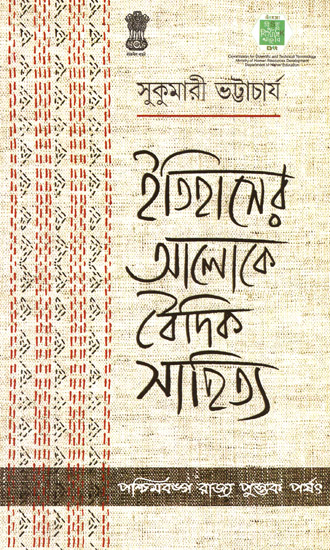 Commission for Scientific and Technical Terminology
Ministry of Human Resources Development
Department of Higher Education
সুকুমারী ভট্টাচার্য
ইতিহাসের
আলোকে
বৈদিক
সাহিত্য
পশ্চিমবঙ্গ রাজ্য পুস্তক পর্ষৎ